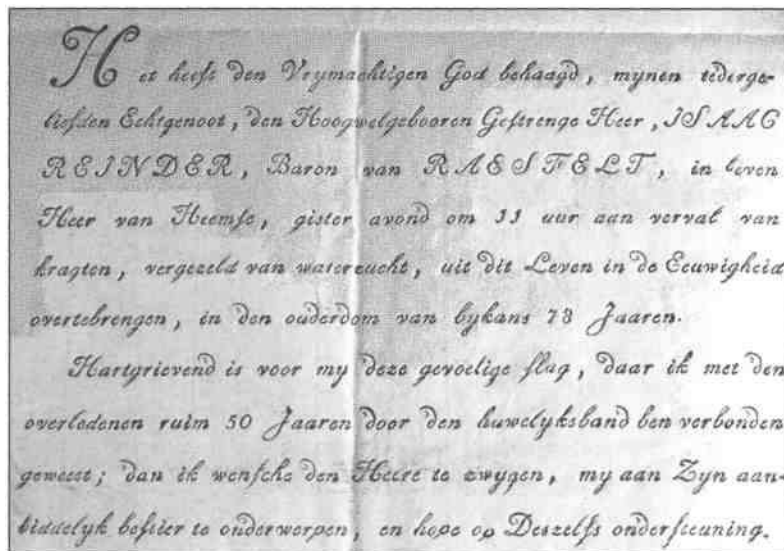 Het heeft den Vrymachtigen God behaagd, mynen tederge-
liefden Echtgenoot, den Hoogwelgebooren Gestrenge Heer, ISAAC
REINDER, Baron van RAESFELT, in leven
Heer van Heemse, gister avond om 11 uur aan verval van
kragten, vergezeld van waterzucht, uit dit Leven in de Eeuwigheid
overtebrengen, in den ouderdom van bykans 78 Jaaren.
Hartgrievend is voor my deze gevoelige slag, daar ik met den
overledenen ruim 50 Jaaren door den huwelyksband ben verbonden
geweest; dan ik wensche den Heere te zwygen, my aan Zyn aan-
biddelyk bestier te onderwerpen, en hope op Deszelfs ondersteuning.